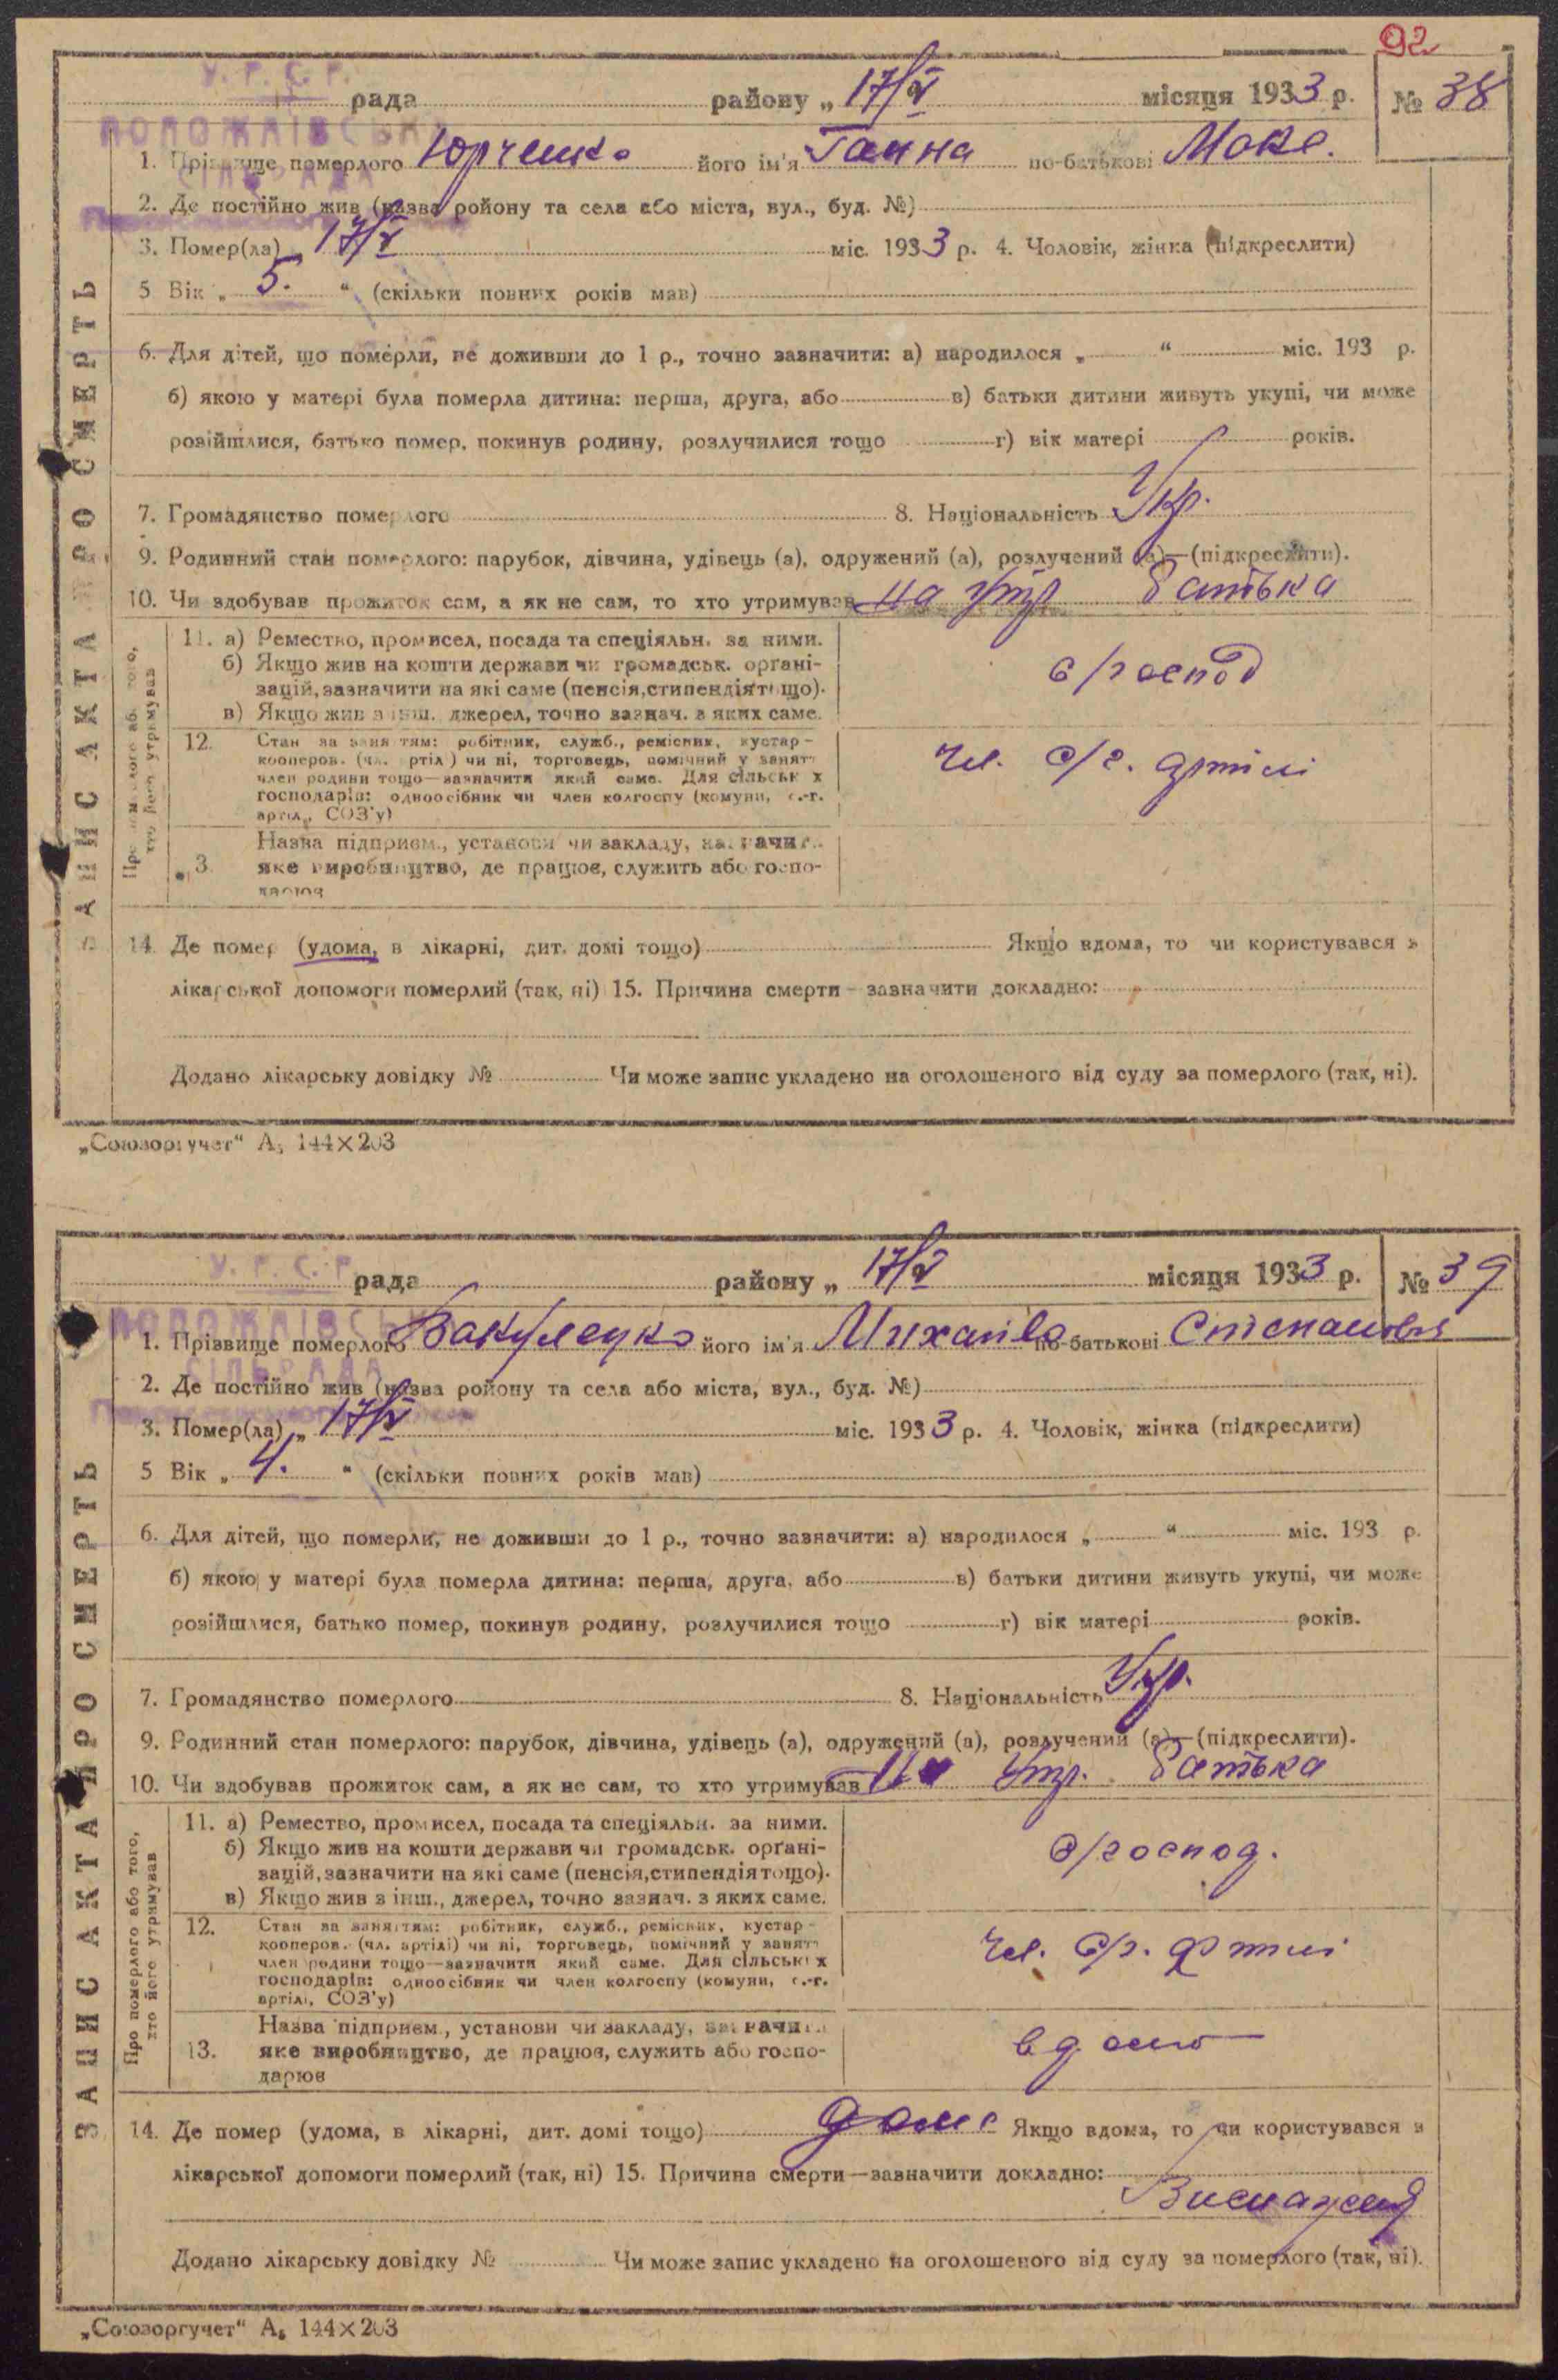 92
У. Р. С. Р.
рада району „ 17/V місяця 1933 р. № 38
СІЛЬРАДА
1. Прізвище померлого Юрченко його ім'я Ганна по-батькові Мокс.
2. Де постійно жив (назва ройону та села або міста, вул., буд. №)
3. Помер(ла) „ 17/V міс. 1933 р. 4. Чоловік, жінка (підкреслити)
5 Вік „ 5. “ (скільки повних років мав)
6. Для дітей, що померли, не доживши до 1 р., точно зазначити: а) народилося „ “ міс. 193 р.
б) якою у матері була померла дитина: перша, друга, або в) батьки дитини живуть укупі, чи може
розійшлися, батько помер, покинув родину, розлучилися тощо г) вік матері років.
7. Громадянство померлого 8. Національність Укр.
9. Родинний стан померлого: парубок, дівчина, удівець (а), одружений (а), розлучений (а)—(підкреслити).
10. Чи здобував прожиток сам, а як не сам, то хто утримував на утр батька
11. а) Ремество, промисел, посада та спеціяльн. за ними.
б) Якщо жив на кошти держави чи громадськ. орґані-
зацій, зазначити на які саме (пенсія, стипендія тощо).
в) Якщо жив з інш. джерел, точно зазнач. з яких саме.
с/господ
12. Стан за заняттям: робітник, служб., ремісник, кустар-
кооперов. (чл. артілі) чи ні, торговець, помічний у занятт
член родини тощо—зазначити який саме. Для сільськ х
господарів: одноосібник чи член колгоспу (комуни, с.-г.
артілі, СОЗ'у)
чл. с/г. артілі
13. Назва підприєм., установи чи закладу, зазначити
яке виробництво, де працює, служить або госпо-
дарює
Про померлого або того,
хто його утримував
14. Де помер (удома, в лікарні, дит. домі тощо) Якщо вдома, то чи користувався з
лікарської допомоги померлий (так, ні) 15. Причина смерти—зазначити докладно:
Додано лікарську довідку № Чи може запис укладено на оголошеного від суду за померлого (так, ні).
ЗАПИС АКТА ПРО СМЕРТЬ
„Союзоргучет“ А₅ 144×203
У. Р. С. Р.
рада району „ 17/V місяця 1933 р. № 39
СІЛЬРАДА
1. Прізвище померлого Вакуленко його ім'я Михайло по-батькові Степанович
2. Де постійно жив (назва ройону та села або міста, вул., буд. №)
3. Помер(ла) „ 17/V міс. 1933 р. 4. Чоловік, жінка (підкреслити)
5 Вік „ 4. “ (скільки повних років мав)
6. Для дітей, що померли, не доживши до 1 р., точно зазначити: а) народилося „ “ міс. 193 р.
б) якою у матері була померла дитина: перша, друга, або в) батьки дитини живуть укупі, чи може
розійшлися, батько помер, покинув родину, розлучилися тощо г) вік матері років.
7. Громадянство померлого 8. Національність Укр.
9. Родинний стан померлого: парубок, дівчина, удівець (а), одружений (а), розлучений (а)—(підкреслити).
10. Чи здобував прожиток сам, а як не сам, то хто утримував На утр. батька
11. а) Ремество, промисел, посада та спеціяльн. за ними.
б) Якщо жив на кошти держави чи громадськ. орґані-
зацій, зазначити на які саме (пенсія, стипендія тощо).
в) Якщо жив з інш., джерел, точно зазнач. з яких саме.
с/господ.
12. Стан за заняттям: робітник, служб., ремісник, кустар-
кооперов. (чл. артілі) чи ні, торговець, помічний у занятт
член родини тощо—зазначити який саме. Для сільськ х
господарів: одноосібник чи член колгоспу (комуни, с.-г.
артілі, СОЗ'у)
чл. с/г. артілі
13. Назва підприєм., установи чи закладу, зазначити
яке виробництво, де працює, служить або госпо-
дарює
Про померлого або того,
хто його утримував
14. Де помер (удома, в лікарні, дит. домі тощо) дома Якщо вдома, то чи користувався з
лікарської допомоги померлий (так, ні) 15. Причина смерти—зазначити докладно:
Виснаження
Додано лікарську довідку № Чи може запис укладено на оголошеного від суду за померлого (так, ні).
ЗАПИС АКТА ПРО СМЕРТЬ
„Союзоргучет“ А₅ 144×203